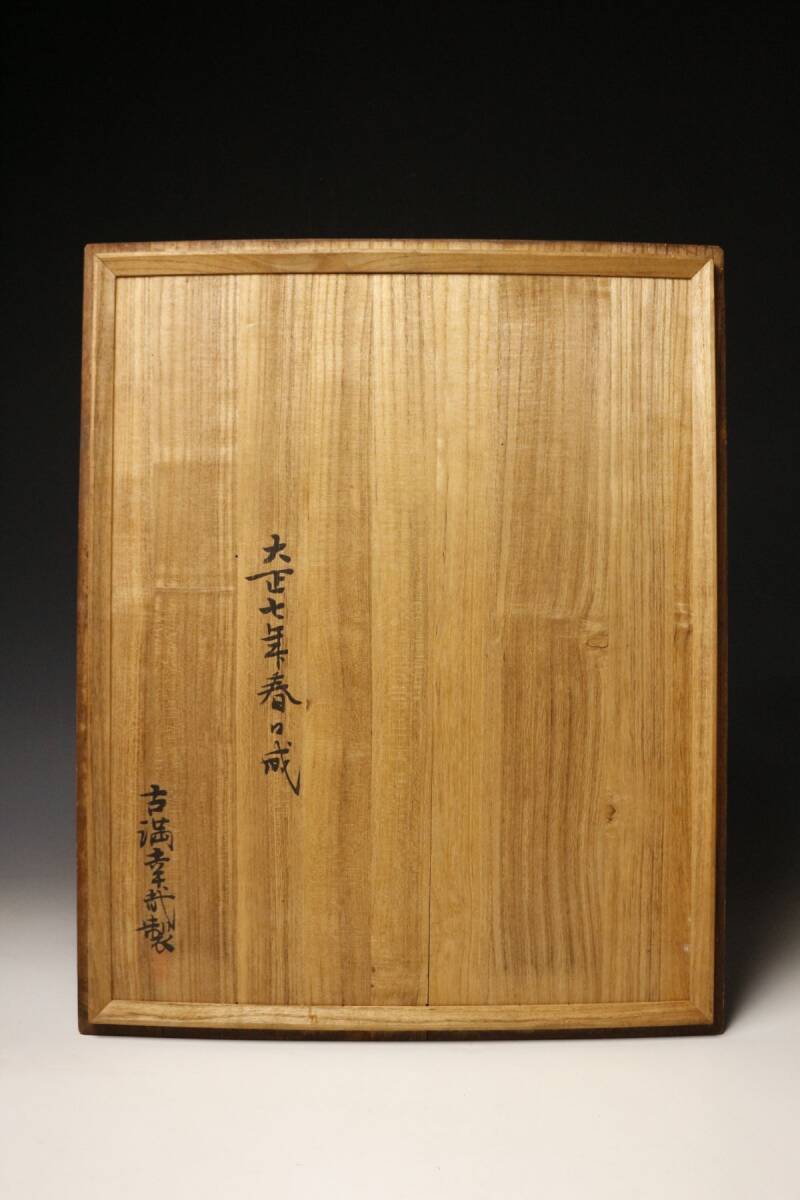 大正七年春日成
古満幸哉製